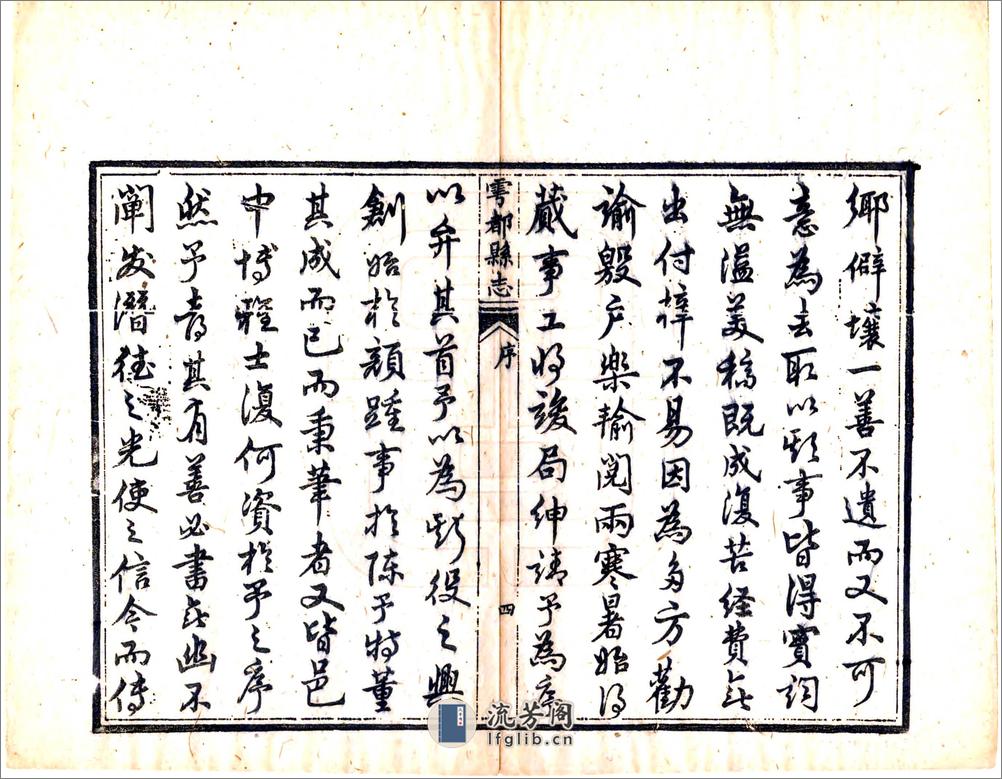 鄉僻壤一善不遺而又不可
意為去取以期事皆得實詞
無溢美稿既成復苦經費無
出付梓不易因為多方勸
諭殷戶樂輸閱兩寒暑始得
蕆事工將竣局紳請予為序
雩都縣志
序
四
以弁其首予以為斯役之興
創始於顏踵事於陳予特董
其成而已而秉筆者又皆邑
中博雅士復何資於予之序
然予喜其有善必書無幽不
闡發潛德之光使之信今而傳
流芳閣
lfglib.cn